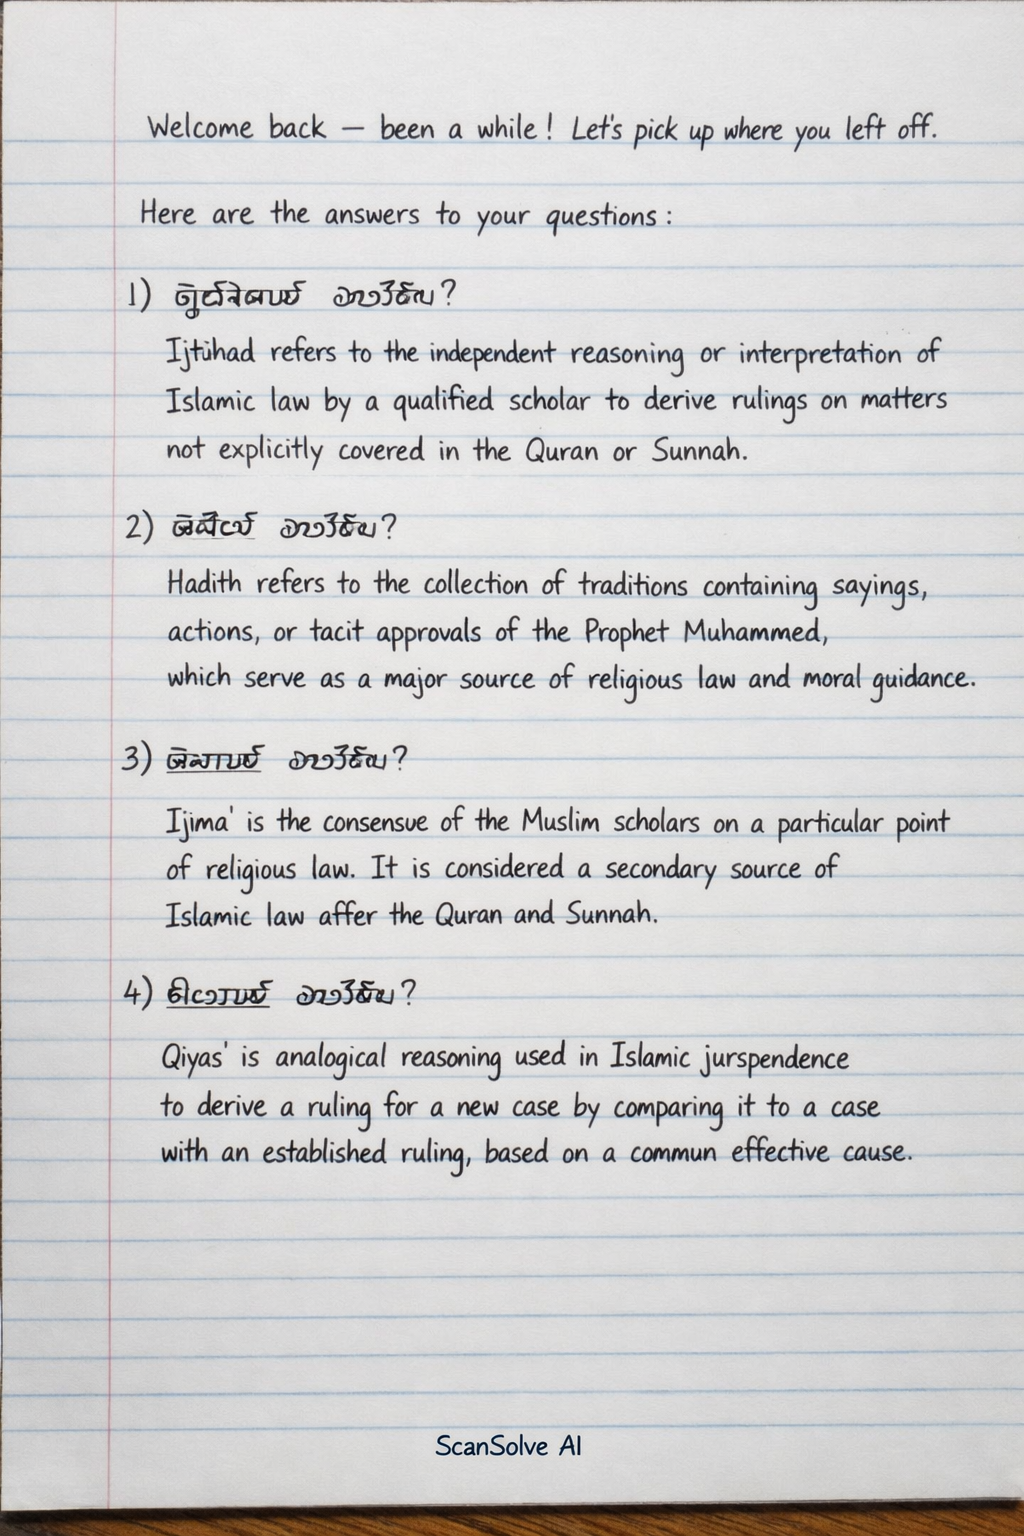 Welcome back — been a while! Let's pick up where you left off.
Here are the answers to your questions:
1)
Ijtihad refers to the independent reasoning or interpretation of
Islamic law by a qualified scholar to derive rulings on matters
not explicitly covered in the Quran or Sunnah.
2)
Hadith refers to the collection of traditions containing sayings,
actions, or tacit approvals of the Prophet Muhammed,
which serve as a major source of religious law and moral guidance.
3)
Ijima' is the consensue of the Muslim scholars on a particular point
of religious law. It is considered a secondary source of
Islamic law affer the Quran and Sunnah.
4)
Qiyas' is analogical reasoning used in Islamic jurspendence
to derive a ruling for a new case by comparing it to a case
with an established ruling, based on a commun effective cause.
ScanSolve AI